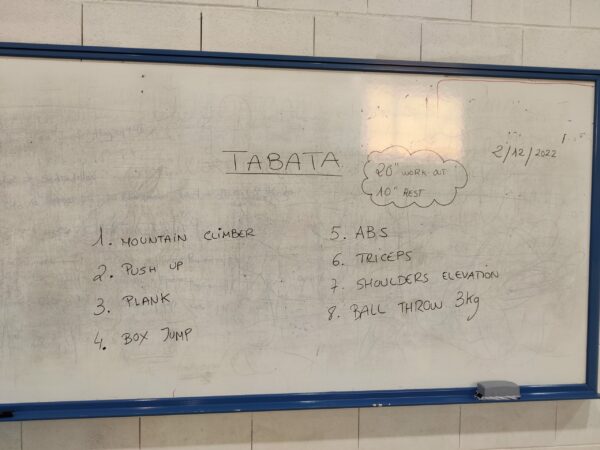 TABATA
20" WORK-OUT
10" REST
2/12/2022
1. MOUNTAIN CLIMBER
2. PUSH UP
3. PLANK
4. BOX JUMP
5. ABS
6. TRICEPS
7. SHOULDERS ELEVATION
8. BALL THROW 3kg